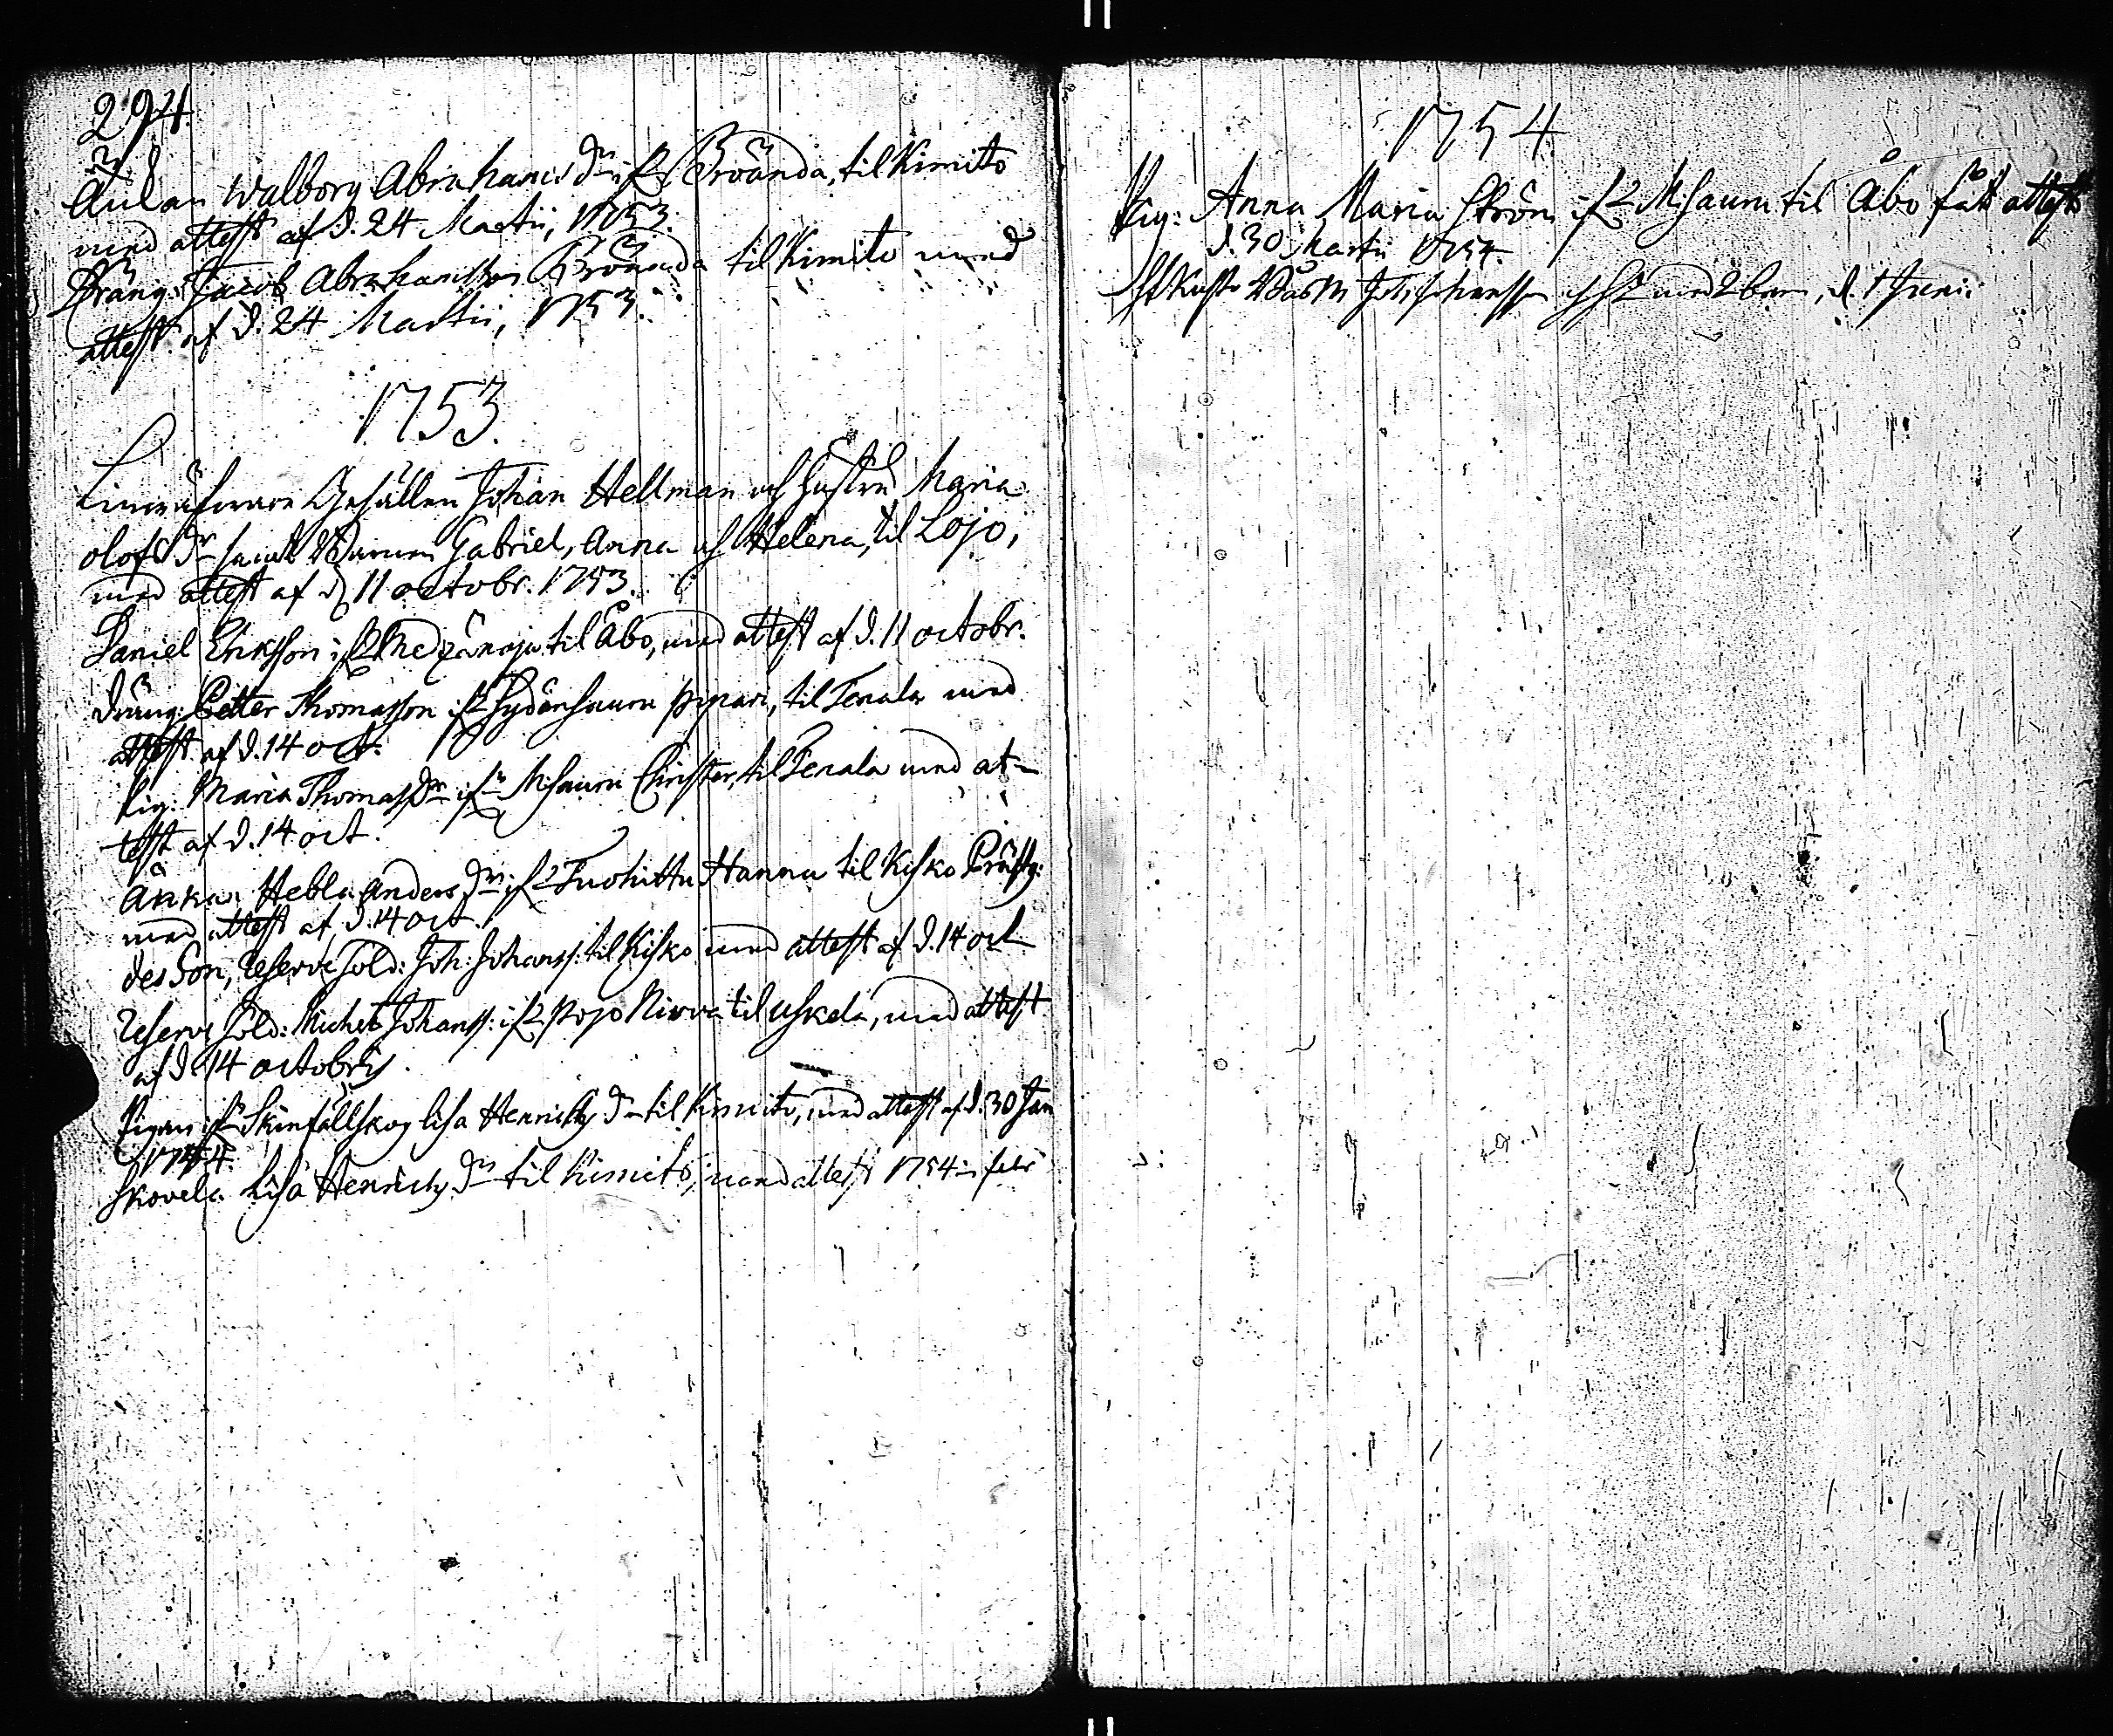 294.
Änkan Walborg Abrahams Dr ifr Bröända, til Kimito
med attest af d. 24 Martii, 1753.
Dräng: Jacob Abrahamsson Bröända til Kimito med
attest af d. 24 Martii, 1753.
1753.
Gesällen Johan Hellman och Hustru Maria
Olofs Dr samt Barnen Gabriel, Anna och Helena, til Lojo,
med attest af d 11 octobr. 1753.
Daniel Eriksson ifr til Åbo, med attest af d. 11 octobr.
Dräng: Petter Thomasson ifr til Tenala med
attest af d. 14 oct.
Pig: Maria Thomas Dr ifr til Tenala med at-
test af d. 14 oct.
Änkan Hebla Anders Dr ifr Tuohittu Hannu til Kisko
med attest af d. 14 oct.
des Son, Reserve Sold: Joh: Johanss: til Kisko med attest af d. 14 oct
Reserve Sold: Michel Johanss: ifr Pojo til Uskela, med attest
af d. 14 octobris.
Pigan ifr Lisa Henrichs Dr til Kimito, med attest af d. 30 Jan
1754.
Skovela Lisa Henrichs Dr til Kimito, med attest 1754 in febr
1754
Pig: Anna Maria Ström ifr til Åbo fåt attest
d. 30 Martii 1754.
med 2 barn, d. 1 Junii